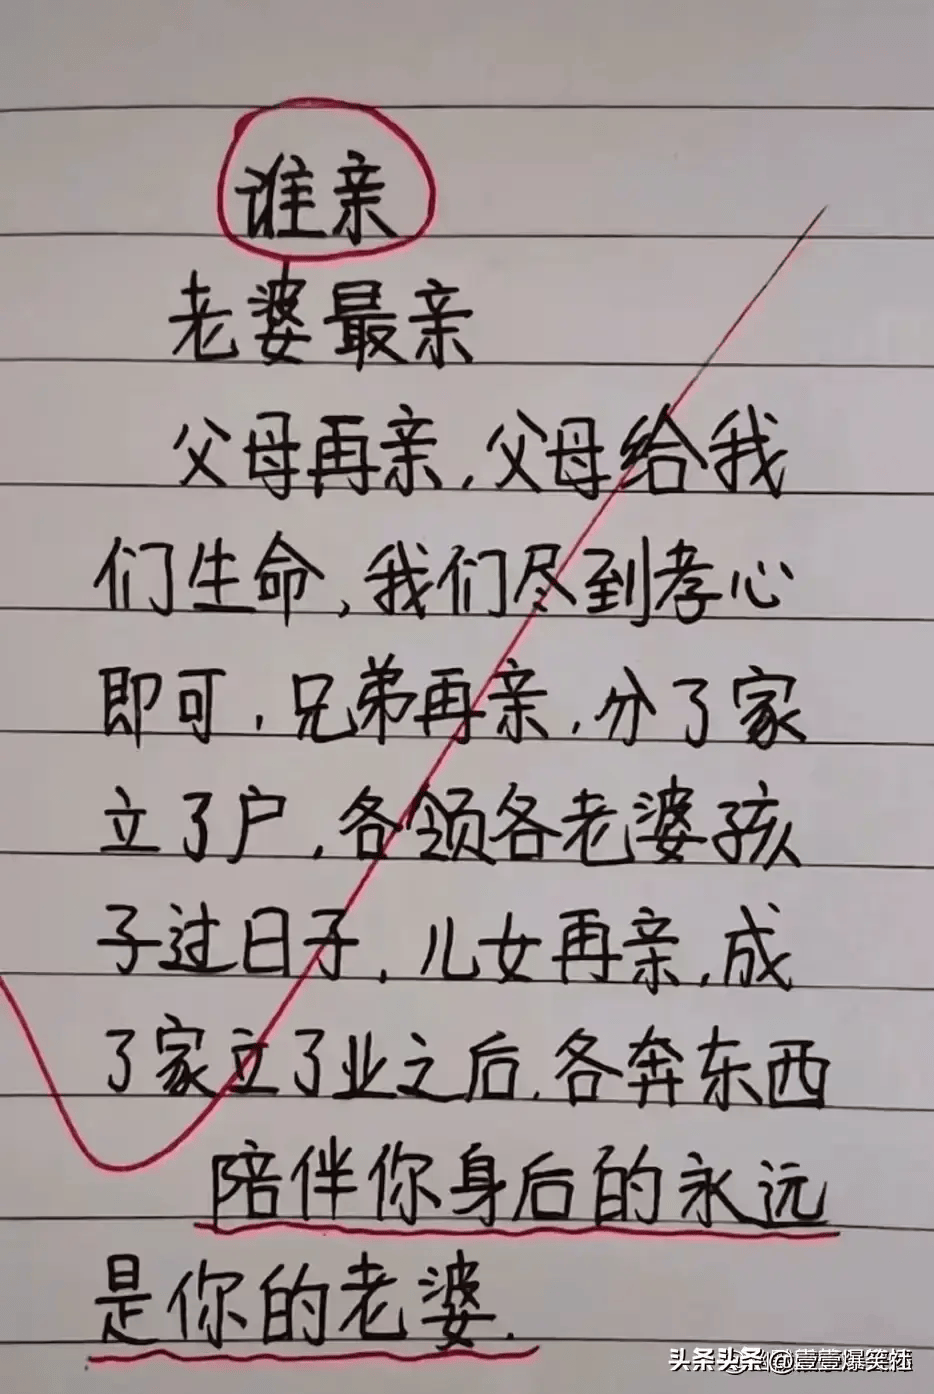 谁亲
老婆最亲
父母再亲,父母给我
们生命,我们尽到孝心
即可,兄弟再亲,分了家
立了户,各领各老婆孩
子过日子,儿女再亲,成
了家立了业之后,各奔东西
陪伴你身后的永远
是你的老婆.
头条头条@壹壹爆笑社